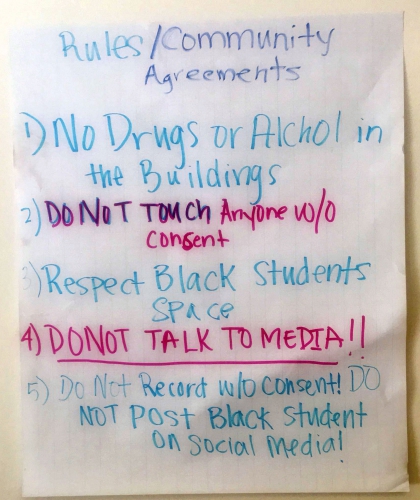 Rules/Community
Agreements
1) No Drugs or Alchol in
the Buildings
2) DO NOT TOUCH Anyone w/o
Consent
3) Respect Black Students
Space
4) DO NOT TALK TO MEDIA!!
5) Do Not Record w/o Consent! DO
NOT POST Black Student
on Social Media!